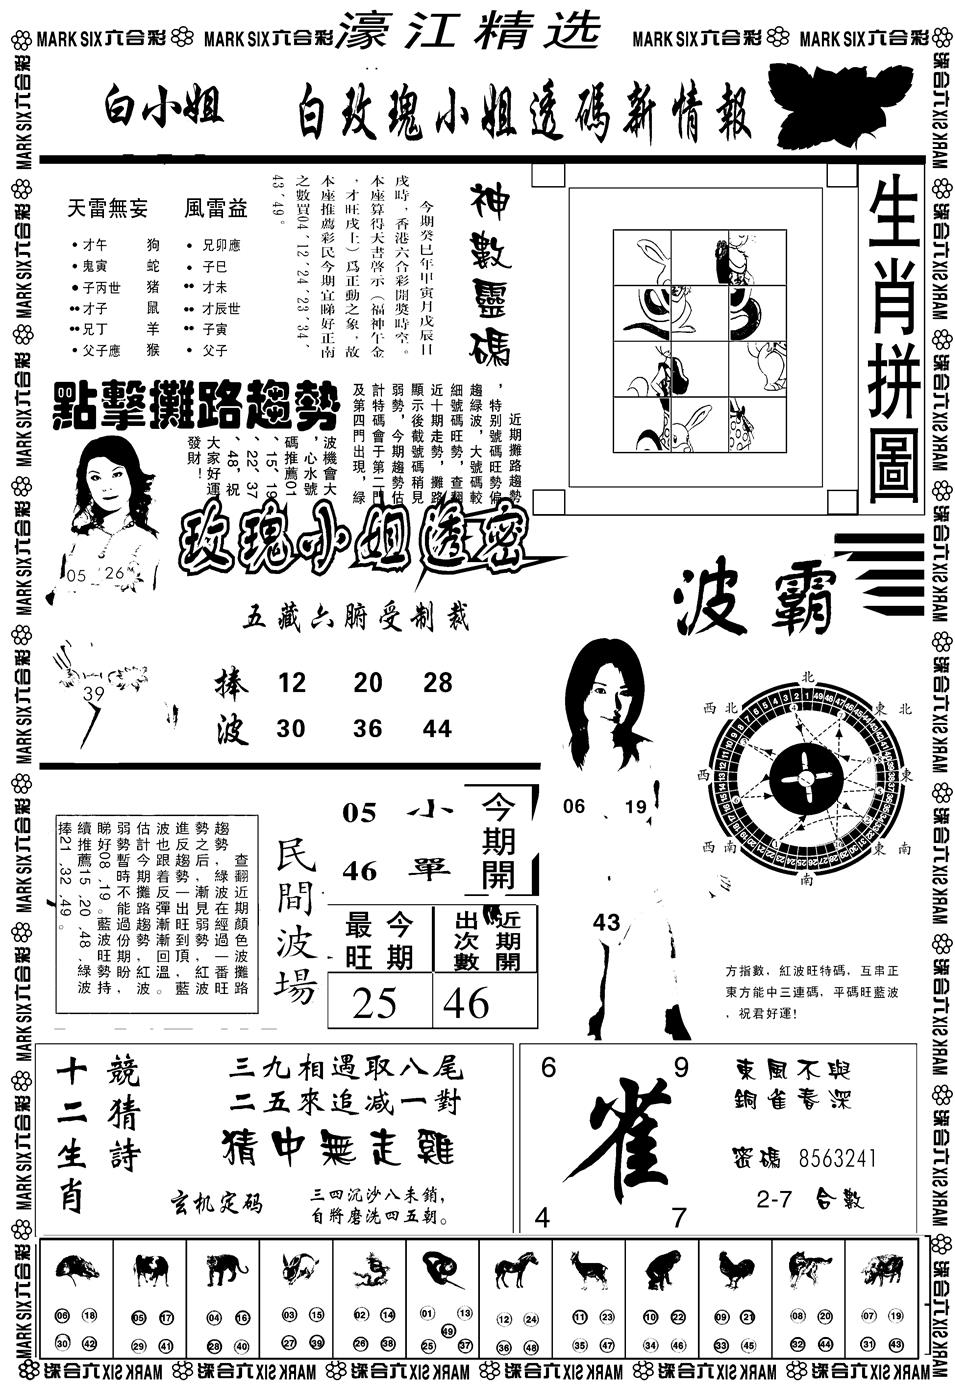 MARK SIX六合彩 MARK SIX六合彩 濠江精选 MARK SIX六合彩 MARK SIX六合彩
白小姐 白玫瑰小姐透碼新情報
天雷無妄 風雷益
・才午 狗 ・兄卯應
・鬼寅 蛇 ・子巳
●子丙世 豬 ・・才未
・・才子 鼠 ・・才辰世
・・兄丁 羊 ・・子寅
・父子應 猴 ・父子
神數靈碼
今期癸巳年甲寅月戊辰日
戌時，香港六合彩開獎時空。
本座算得天書啓示（福神午金
，才旺戌上）爲正動之象，故
本座推薦彩民今期宜睇好正南
之數買04、12、24、23、34、
43、49。
生肖拼圖
點擊攤路趨勢
近期攤路趨勢
，特別號碼旺勢偏
趨綠波，大號碼較
細號碼旺勢，查翻
近十期走勢，攤路
顯示後截號碼稍見
弱勢，今期趨勢估
計特碼會于第二門
及第四門出現，綠
波機會大
，心水號
碼推薦01
、15、19
、22、37
、48，祝
大家好運
發財！
玫瑰小姐透密
05 26
39
五藏六腑受制裁
捧 12 20 28
波 30 36 44
波霸
06 19
43
北
西北 東北
西 東
西南 東南
南
方指數，紅波旺特碼，互串正
東方能中三連碼，平碼旺藍波
，祝君好運！
查翻近期顏色波攤路
趨勢，綠波在經過一番旺
勢之后，漸見弱勢，紅波
進反趨勢一出旺到頂，藍
波也跟着反彈漸漸回溫。
估計今期攤路趨勢紅波
弱勢暫時不能過份期盼，
睇好08、19。藍波旺勢持
續推薦15、20、48，綠波
捧21、32、49。
民間波場
05 小
46 單
今期開
今期最旺
近期開出次數
25 46
十二生肖
競猜詩
三九相遇取八尾
二五來追减一對
猜中無走雞
玄机定码
三四沉沙八未銷，
自將磨洗四五朝。
6 9
雀
4 7
東風不與
銅雀春深
密碼 8563241
2-7 合數
06 18 30 42
05 17 29 41
04 16 28 40
03 15 27 39
02 14 26 38
01 13 49 25 37
12 24 36 48
11 23 35 47
10 22 34 46
09 21 33 45
08 20 32 44
07 19 31 43
MARK SIX六合彩 MARK SIX六合彩 MARK SIX六合彩 MARK SIX六合彩 MARK SIX六合彩 MARK SIX六合彩